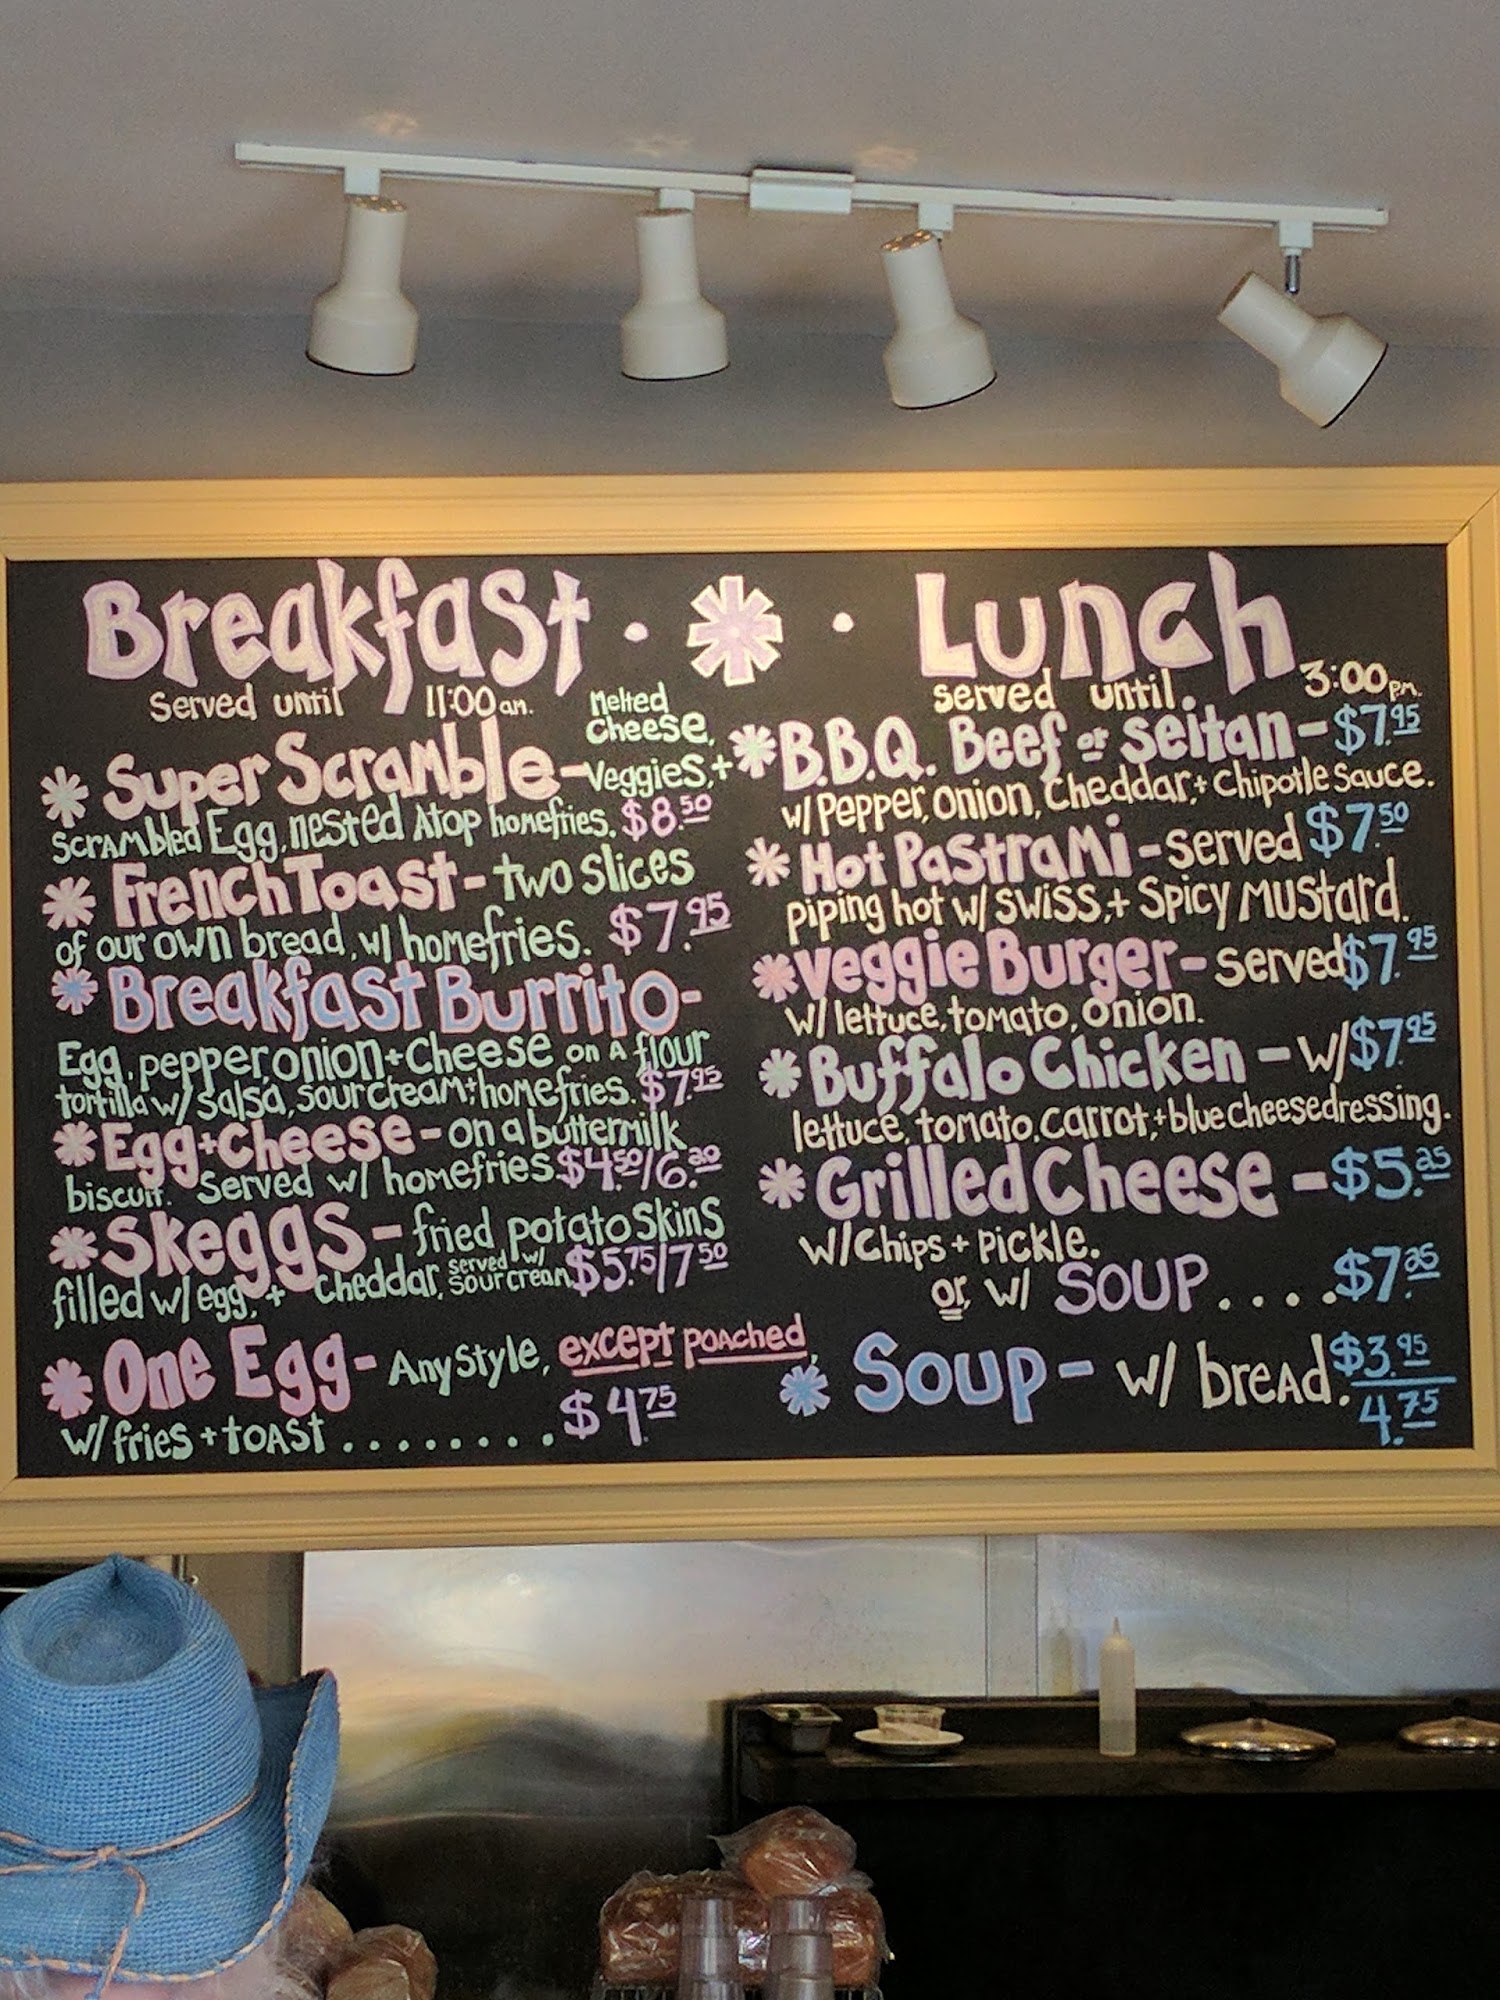 Breakfast · * ·
Served until 11:00 am.
* Super Scramble - Melted Cheese, Veggies, +
Scrambled Egg, nested Atop homefries. $8.50
* French Toast - two slices
of our own bread, w/ homefries. $7.95
* Breakfast Burrito -
Egg, pepper, onion + Cheese on A flour
tortilla w/ salsa, sour cream + homefries. $7.95
* Egg + Cheese - on a buttermilk
biscuit. Served w/ homefries $4.50/6.20
* Skeggs - fried potato skins
filled w/ egg, + cheddar, served w/ sour cream $5.75/7.50
* One Egg - Any Style, except poached,
w/ fries + toast ........ $4.75
Lunch
served until 3:00 pm.
* B.B.Q. Beef or Seitan - $7.95
w/ Pepper, Onion, Cheddar, + Chipotle Sauce.
* Hot Pastrami - served $7.50
piping hot w/ swiss, + Spicy Mustard.
* Veggie Burger - served $7.95
w/ lettuce, tomato, onion.
* Buffalo Chicken - w/ $7.95
lettuce, tomato, carrot, + blue cheese dressing.
* Grilled Cheese - $5.25
w/ Chips + Pickle.
or w/ SOUP .... $7.25
* Soup - w/ bread. $3.95
4.75